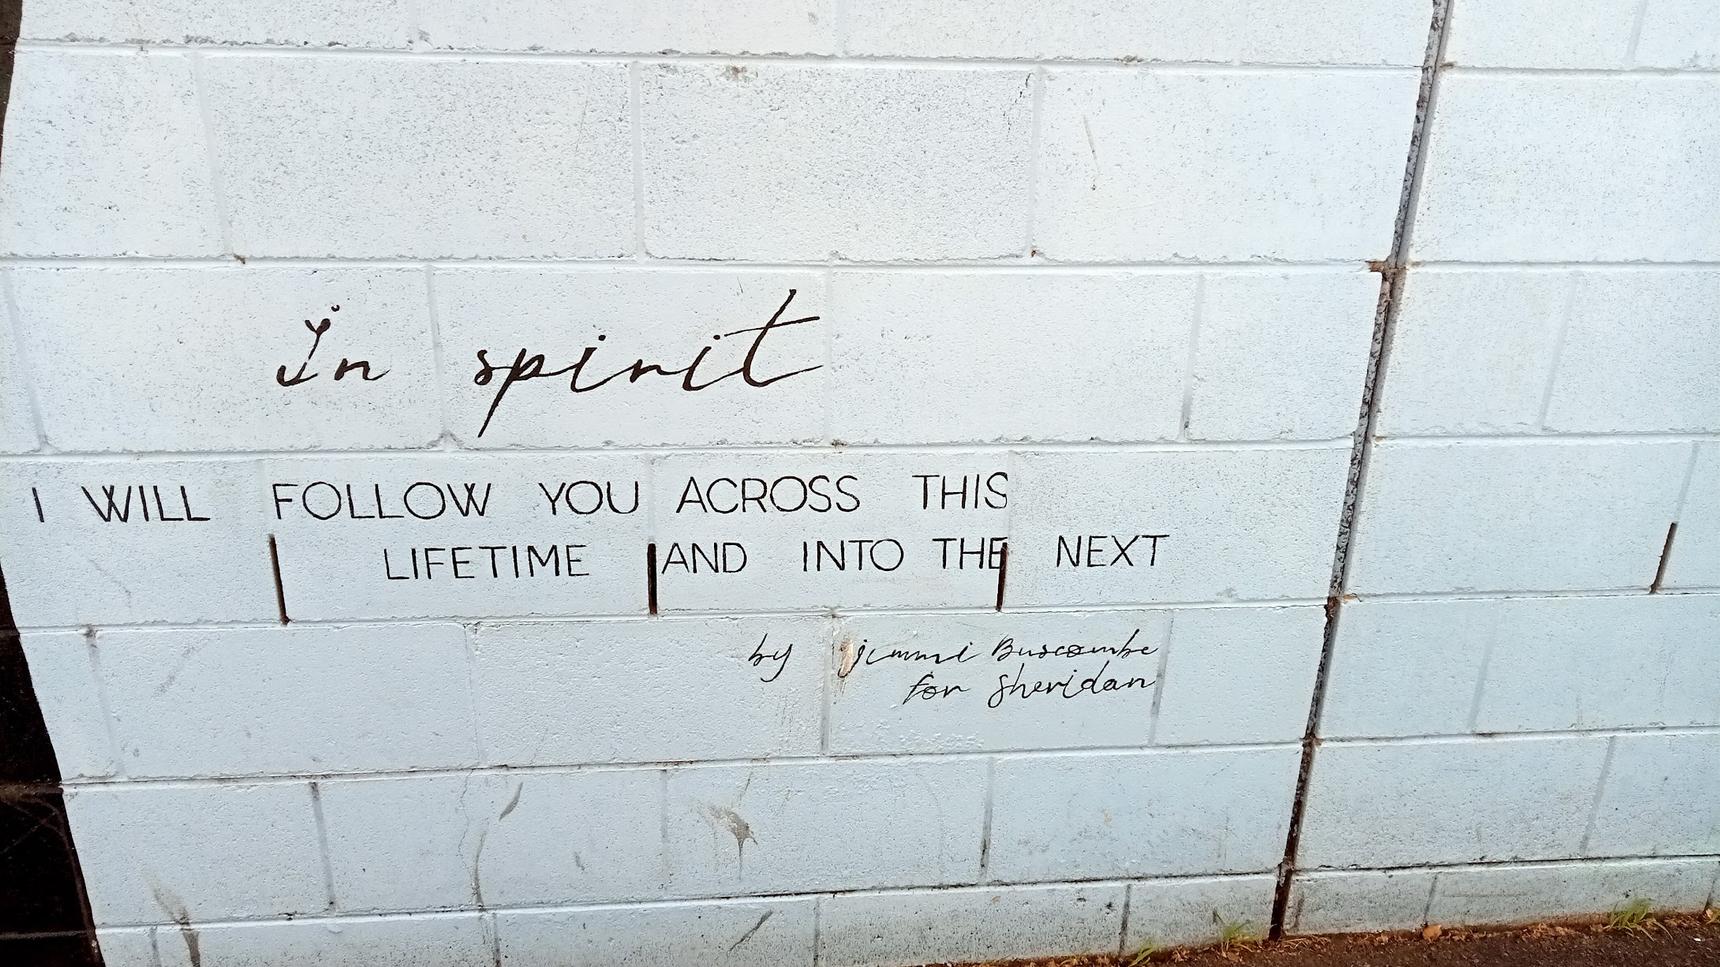 In spirit
I WILL FOLLOW YOU ACROSS THIS
LIFETIME AND INTO THE NEXT
by jimmi Buscombe
for Sheridan